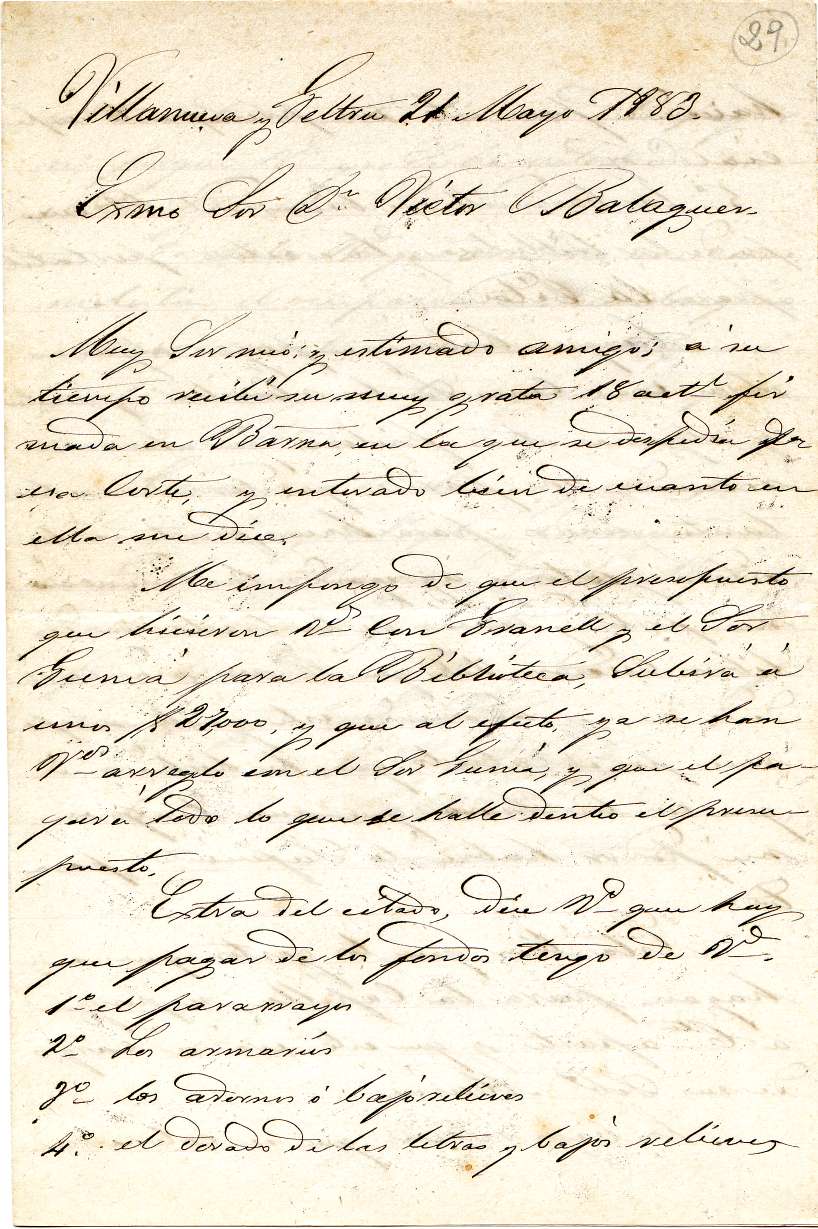 29.
Villanueva y Geltru 21 Mayo 1883.
Exmo Sor Dn Victor Balaguer.
Muy Sor mio; y estimado amigo; á su
tiempo recibi su muy grata 18 actl fir
mada en Barna, en la que se despedia por
esa Corte, y enterado bien de cuanto en
ella me dice.
Me impongo de que el presupuesto
que hicieron Vds con Granell y el Sor
Gumá para la Biblioteca, Subirá á
unos 27,000, y que al efecto, ya se han
Vdes arreglo con el Sor Gumá, y que el pa-
gará todo lo que se halle dentro el presu-
puesto.
Extra del citado, dice Vd que hay
que pagar de los fondos tengo de Vd.
1º el pararrayos
2º Los armarios
3º los adornos ó bajo relieves
4º. el dorado de las letras y bajos relieves